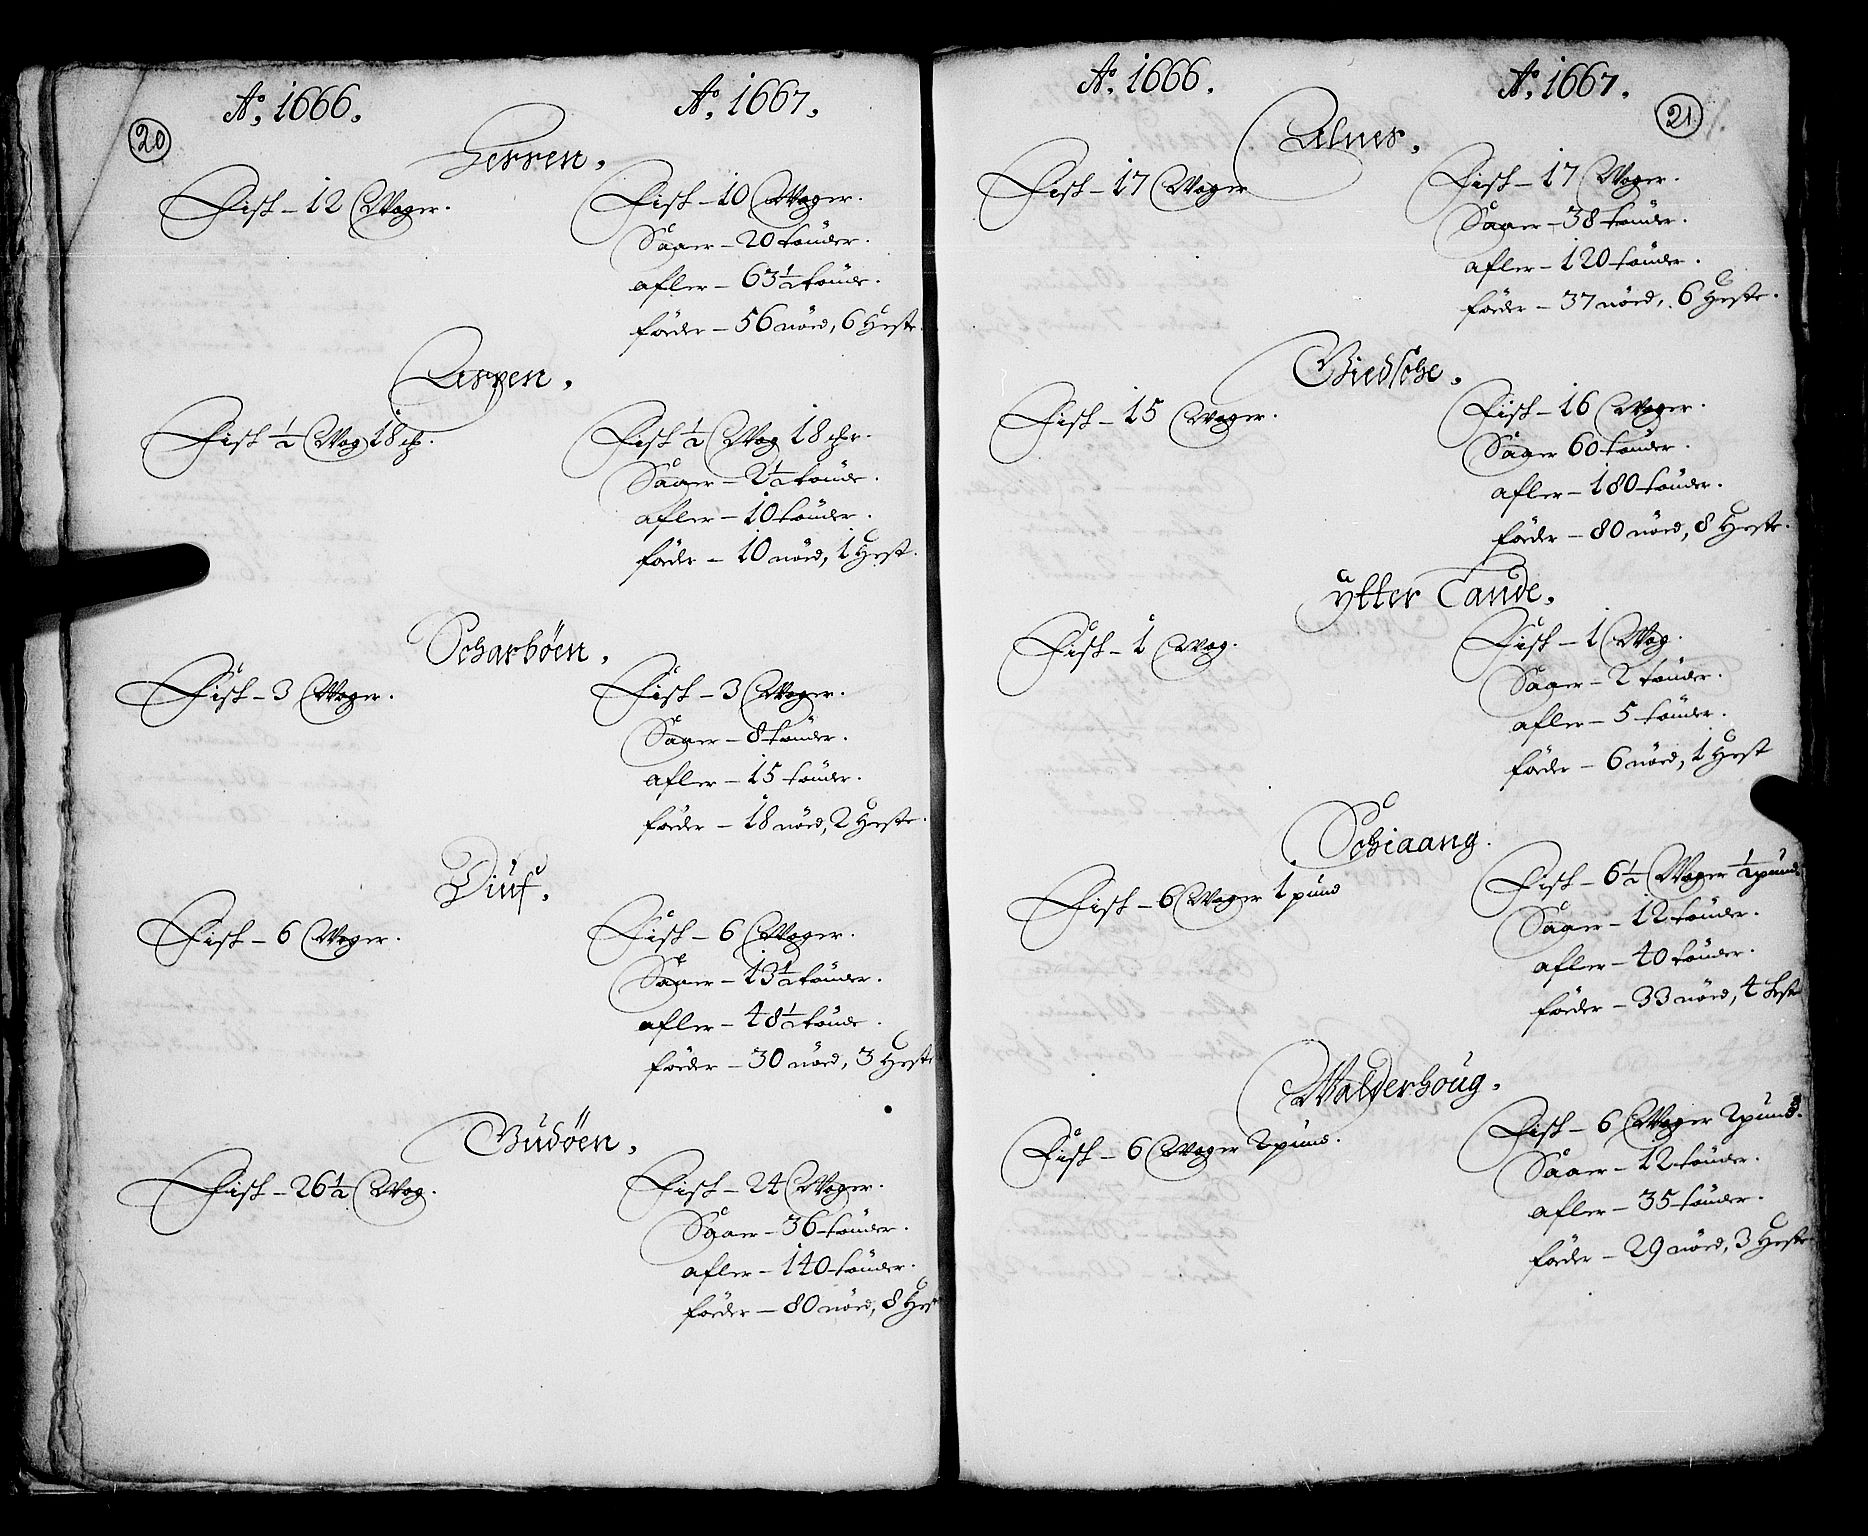 20
Ao. 1666. Ao. 1667.
Gerren.
Fisk – 12 Woger. Fisk – 10 Woger.
Såaer – 20 tønder.
afler – 63½ tønde.
föder – 56 nöed, 6 Heste.
Lerpen.
Fisk ½ Wog 18 Fisk ½ Wog 18
Såaer – 2½ tønde.
afler – 10 tønder.
föder – 10 nöed, 1 Hest.
Scharböen.
Fisk – 3 Woger. Fisk – 3 Woger.
Såaer – 8 tønder.
afler – 15 tønder.
föder – 18 nöed, 2 Heste.
Diuf.
Fisk – 6 Woger. Fisk – 6 Woger.
Såaer – 13½ tønder.
afler – 48½ tønde.
föder – 30 nöed, 3 Heste
Gudøen.
Fisk – 26½ Wog. Fisk – 24 Woger.
Såaer – 36 tønder.
afler – 140 tønder.
föder – 80 nöed, 8 Hest
21
Ao. 1666. Ao. 1667.
Alnes.
Fisk – 17 Woger Fisk – 17 Woger.
Såaer – 38 tønder.
afler – 120 tønder.
föder – 37 nöed, 6 Heste.
Giedsche.
Fisk – 15 Woger. Fisk – 16 Woger.
Såaer 60 tønder.
afler – 180 tønder.
föder – 80 nöed, 8 Heste.
ytter Lande.
Fisk – 1 Wog. Fisk – 1 Wog.
Såaer – 2 tønder.
afler – 5 tønder.
föder – 6 nöed, 1 Hest
Schiaang.
Fisk – 6 Woger 1 pund Fisk – 6½ Woger ½ pund.
Såaer – 12 tønder.
afler – 40 tønder.
föder – 33 nöed, 4 Hest
Walderhoug.
Fisk – 6 Woger 2 pund. Fisk – 6 Woger 2 pund.
Såaer – 12 tønder.
afler – 35 tønder.
föder – 29 nöed, 3 Heste